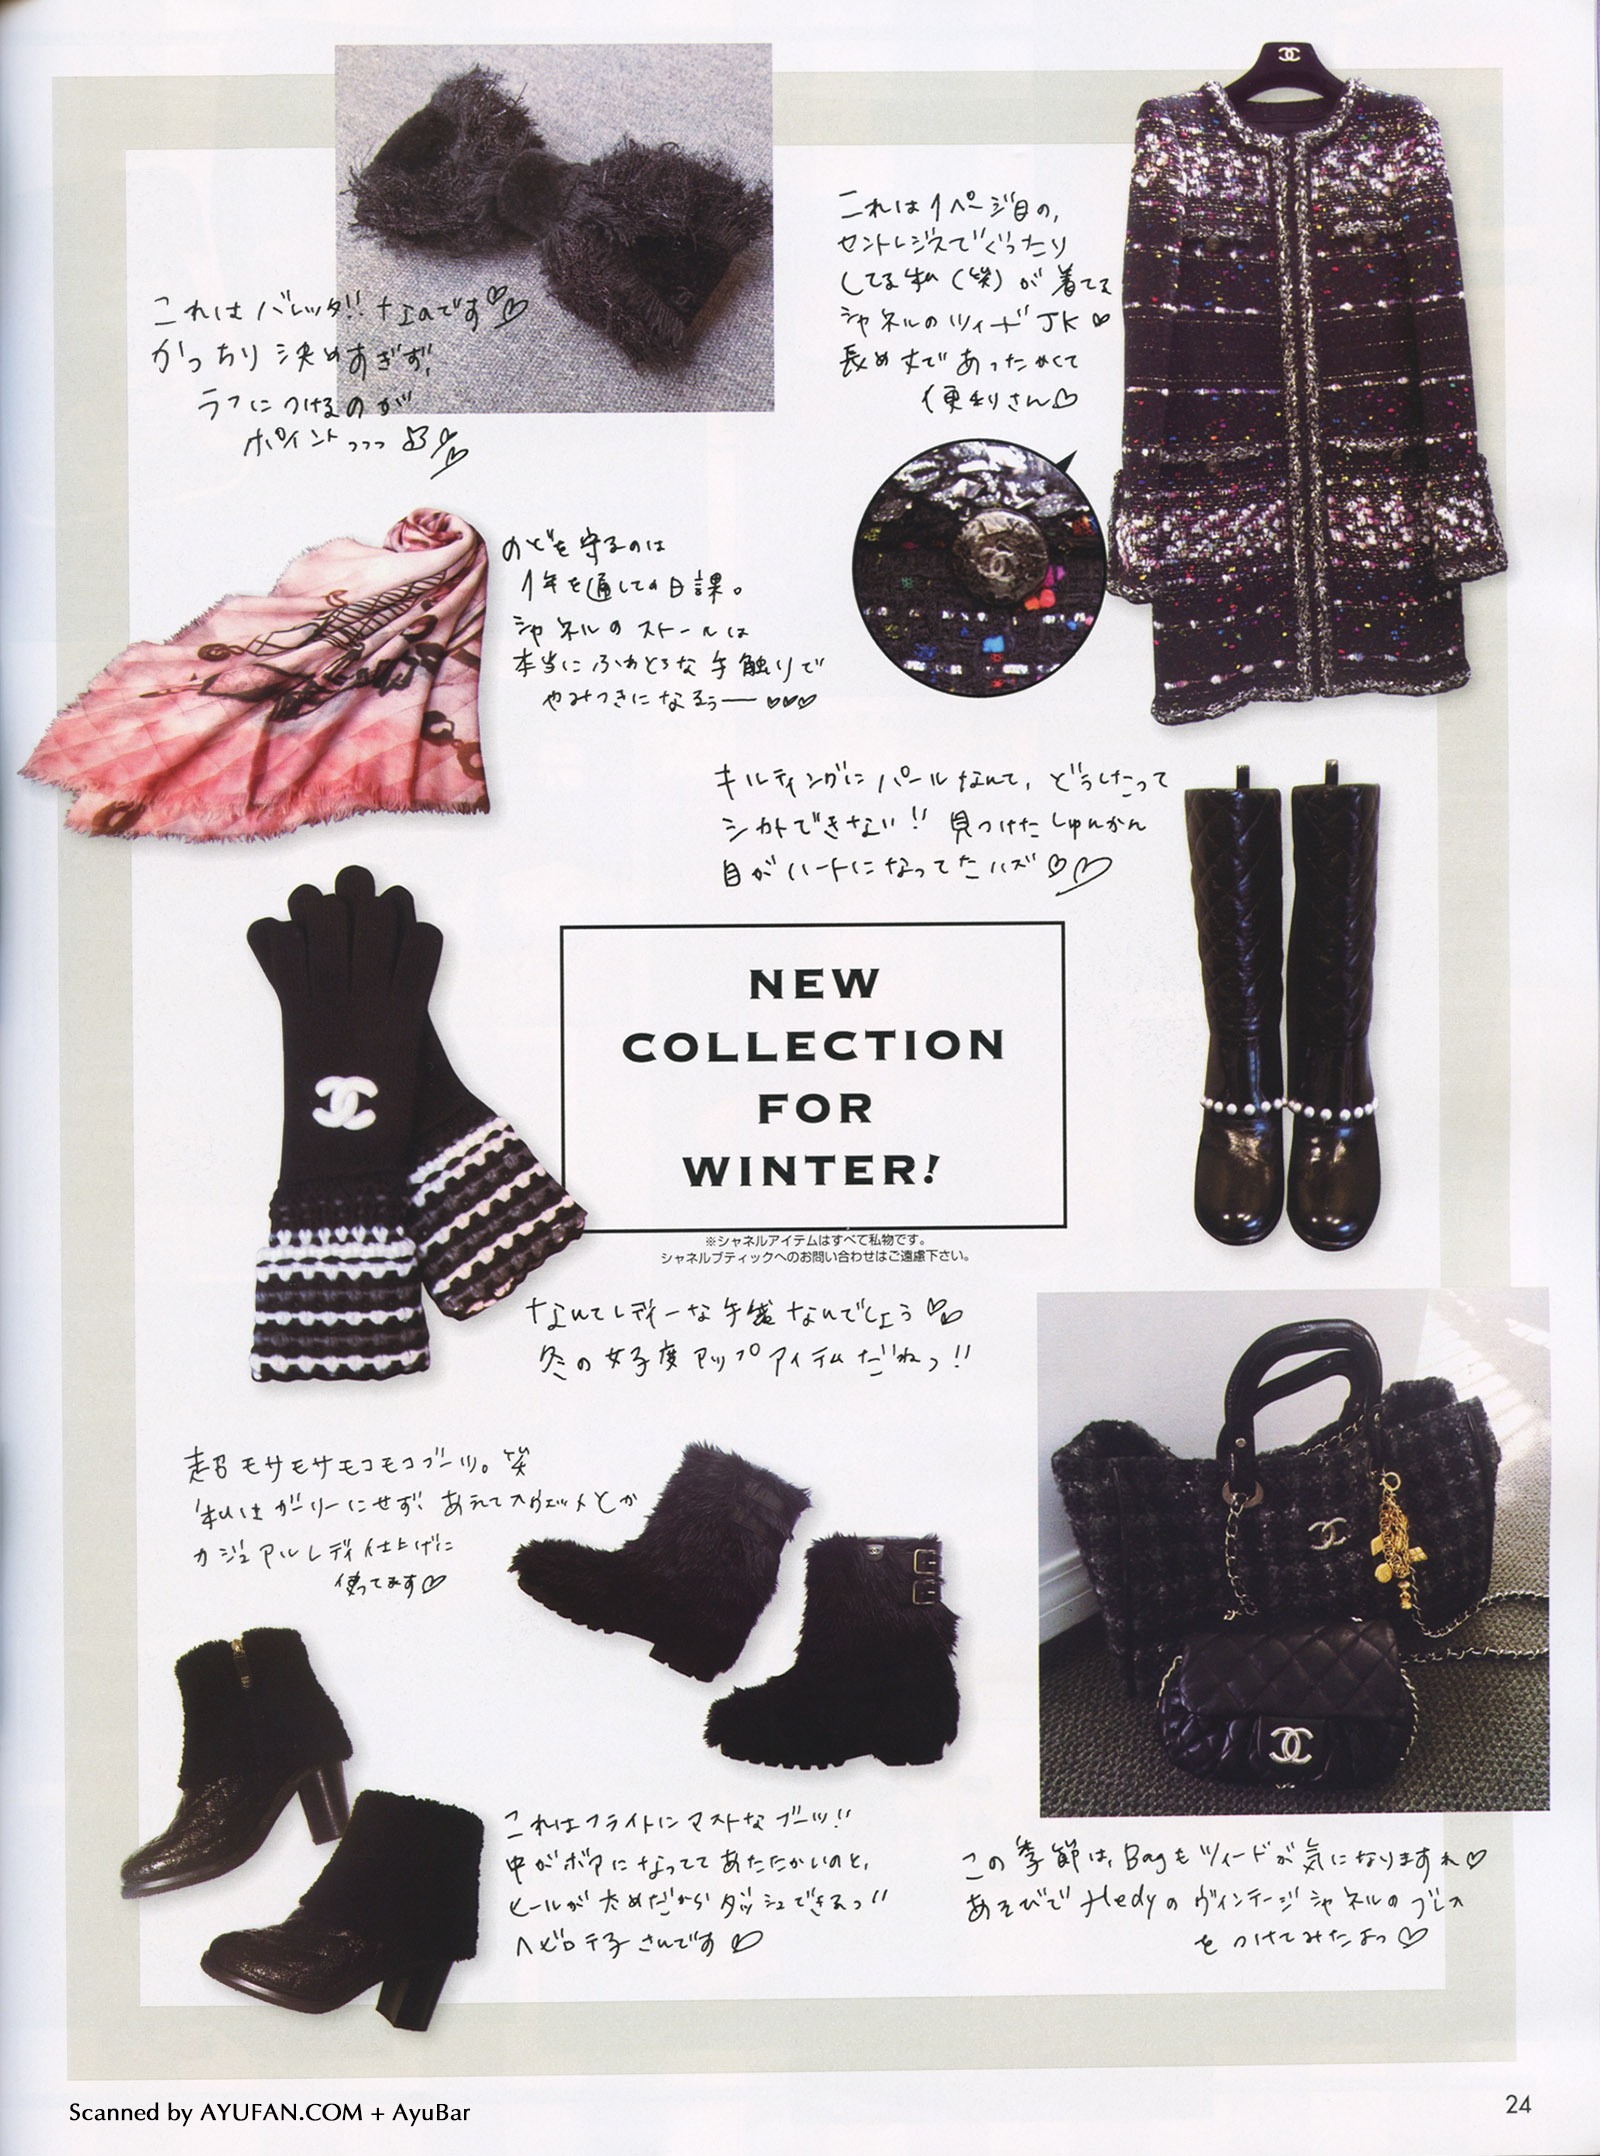 これはバレッタ!! なのです♡♡
かっちり決めすぎず、
ラフにつけるのが
ポイントっっっ
これは1ページ目の、
セントレジスでぐったり
してる私(笑)が着てる
シャネルのツィードJK♡
長め丈であったかくて
便利さん♡
のどを守るのは
1年を通しての日課。
シャネルのストールは
本当にふわとろな手触りで
やみつきになるぅー♡♡♡
キルティングにパールなんて、どうしたって
シカトできない!! 見つけたしゅんかん
目がハートになってたハズ♡♡
NEW
COLLECTION
FOR
WINTER!
※シャネルアイテムはすべて私物です。
シャネルブティックへのお問い合わせはご遠慮下さい。
なんてレディーな手袋なんでしょう♡♡
冬の女子度アップアイテムだねっ!!
超モサモサモコモコブーツ。笑
私はガーリーにせず、あえてスウェットとか
カジュアルレディ仕上げに
使ってます♡
これはフライトにマストなブーツ!!
中がボアになっててあたたかいのと、
ヒールが太めだからダッシュできるっ!!
ヘビロテ子さんです♡
この季節は、Bagもツィードが気になりますね♡
あそびでHedyのヴィンテージシャネルのブレス
をつけてみたよっ♡
Scanned by AYUFAN.COM + AyuBar
24